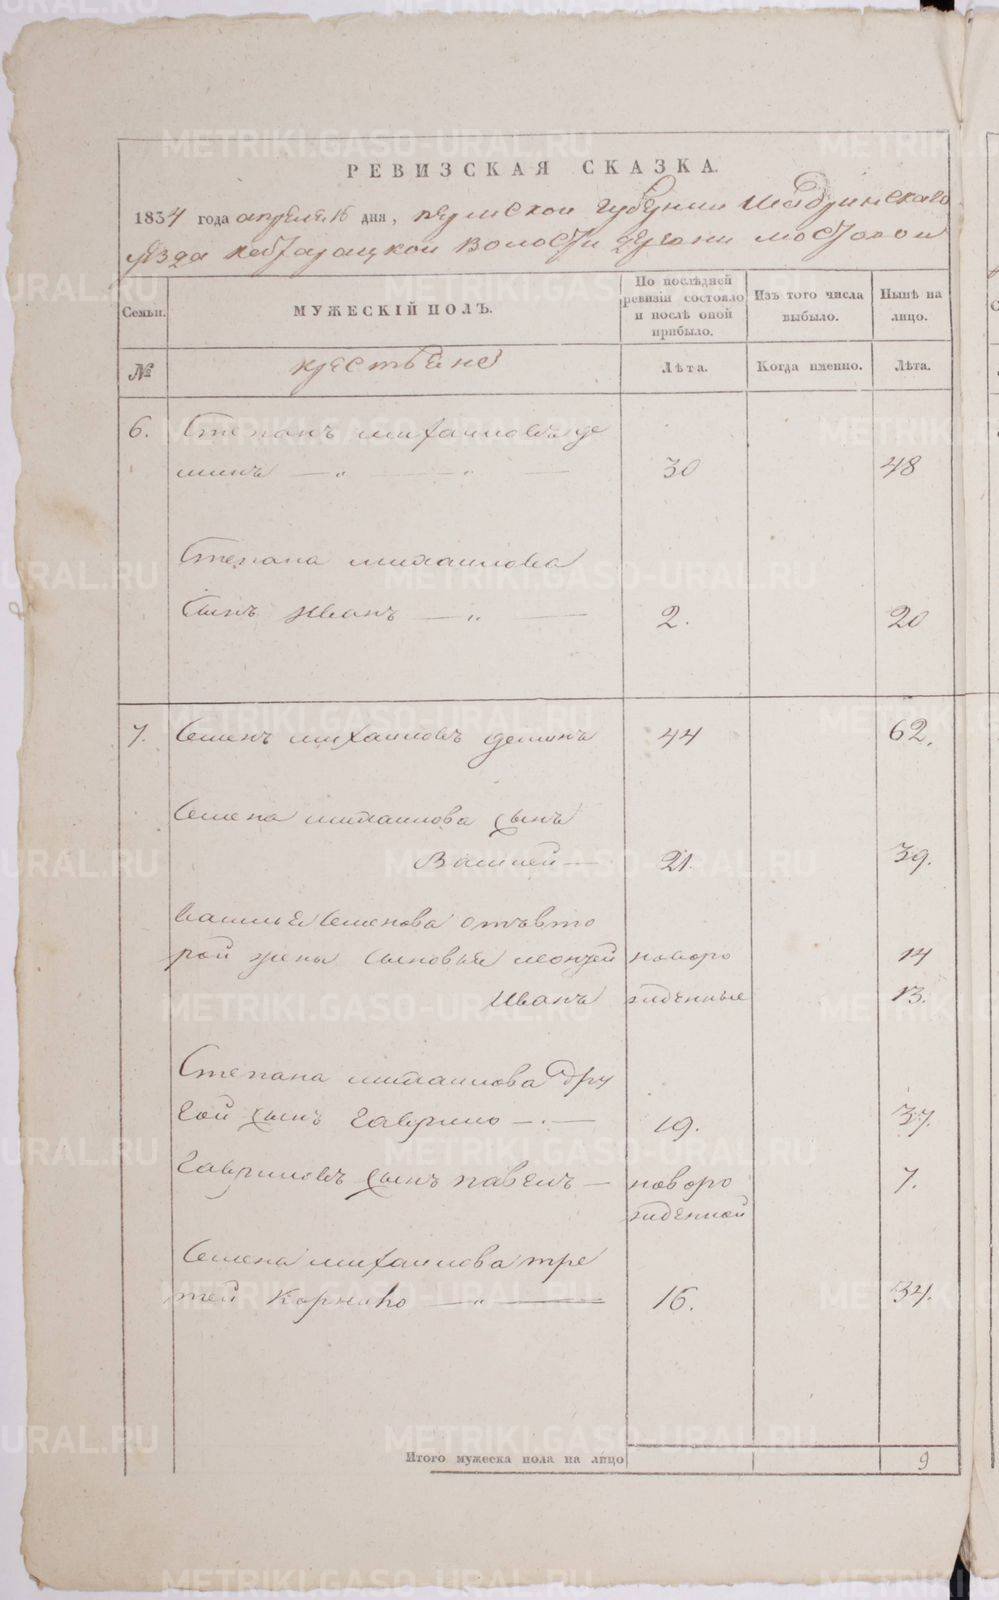 РЕВИЗСКАЯ СКАЗКА.
1834 года апреля 16 дня, пермской губернии Шадринского
уезда волости деревни мостовой
Семьи.
МУЖЕСКІЙ ПОЛЪ.
По послѣдней ревизіи состояло и послѣ оной прибыло.
Изъ того числа выбыло.
Нынѣ на лицо.
№
крестьяне
Лѣта.
Когда именно.
Лѣта.
6. Степанъ михаиловъ де
минъ — „ — „ — 30 48
Степана михаилова
сынъ Иванъ — „ — 2. 20
7. Семенъ михаиловъ деминъ 44 62.
Семена михаилова сынъ
Василей — 21. 39.
Василья Семенова отъ вто
рой жены сыновья леонтей новоро 14
Иванъ жденные 13.
Степана михаилова дру
гой сынъ гаврило — . — 19. 37.
гавриловъ сынъ павелъ — новоро 7.
жденной
Семена михаилова тре
тей Корнило — „ — 16. 34.
Итого мужеска пола на лицо 9
METRIKI.GASO-URAL.RU